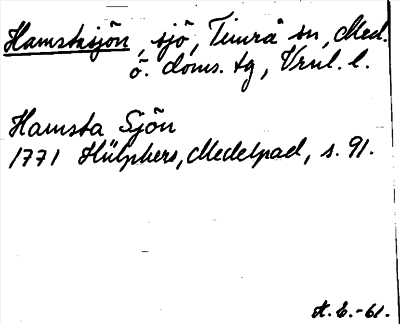 Hamstasjön, sjö, Timrå sn, Med.
ö. doms. tg, Vrnl. l.
Hamsta Sjön
1771 Hülphers, Medelpad, s. 91.
H. E. -61.